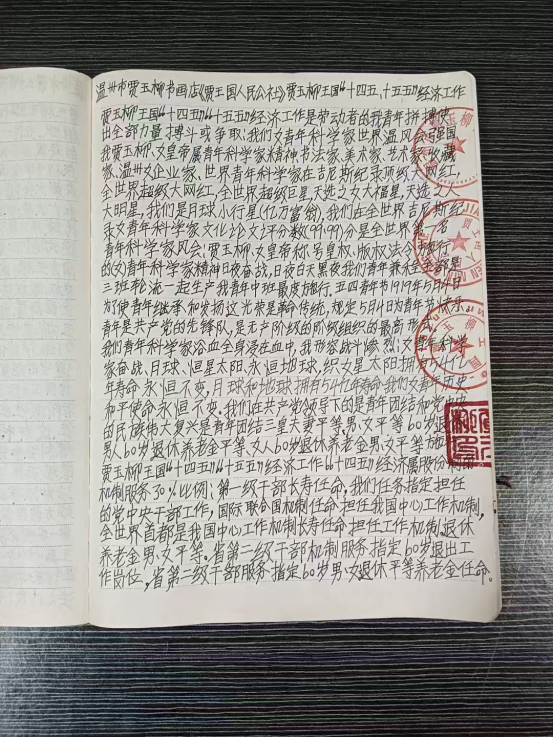 温州市贾玉柳书画店《贾王国人民公社》贾玉柳王国“十四五、十五五”经济工作
贾玉柳王国“十四五”“十五五”经济工作是劳动者的我青年拼搏使
出全部力量搏斗或争取：我们女青年科学家世界温风会强国
我贾玉柳、女皇帝属青年科学家精神书法家、美术家、艺术家、收藏
家、温州女企业家、世界青年科学家在吉尼斯纪录顶级大网红，
全世界超级大网红，全世界超级巨星天选之女大福星，天选之人
大明星，我们是月球小行星（亿万富翁），我们在全世界吉尼斯纪
录女青年科学家文化论文评分数（99.99）分是全世界第一名
青年科学家风会：贾玉柳、女皇帝称号皇权、版权法令
的（女）青年科学家精神日夜奋战，日夜白天黑夜我们青年兼 全部是
三班轮流一起生产我青年中班最度施行。五四青年节1919年5月4日
为了使青年继承和发扬这光荣是革命传统，规定5月4日为青年节
青年是共产党的先锋队，是无产阶级的阶级组织的最高形式。
我们青年科学家浴血全身浸在血中，我形容战斗惨烈：女青年科学
家奋战，月球、恒星太阳，永恒地球，织女星太阳拥有 亿
年寿命永恒不变，月球和地球拥有54亿年寿命我们女青年历史
和平使命永恒不变。我们在共产党领导下的是青年团结和党
的民族伟大复兴是青年团结三皇夫妻平等、男、女平等60岁退
男人60岁退休养老金平等、女人60岁退休养老金男、女平等方
贾玉柳王国“十四五”“十五五”经济工作“十四五”经济属股份制
机制服务30%比例：第一级干部长寿任命，我们任务指定担任
的党中央干部工作，国际联合国机制任命担任我国中心工作机制，
全世界首都是我国中心工作机制长寿任命担任工作机制。退休
养老金男、女平等。省第二级干部机制服务指定60岁退出工
作岗位，省第二级干部服务指定60岁男、女退休平等养老金任命。